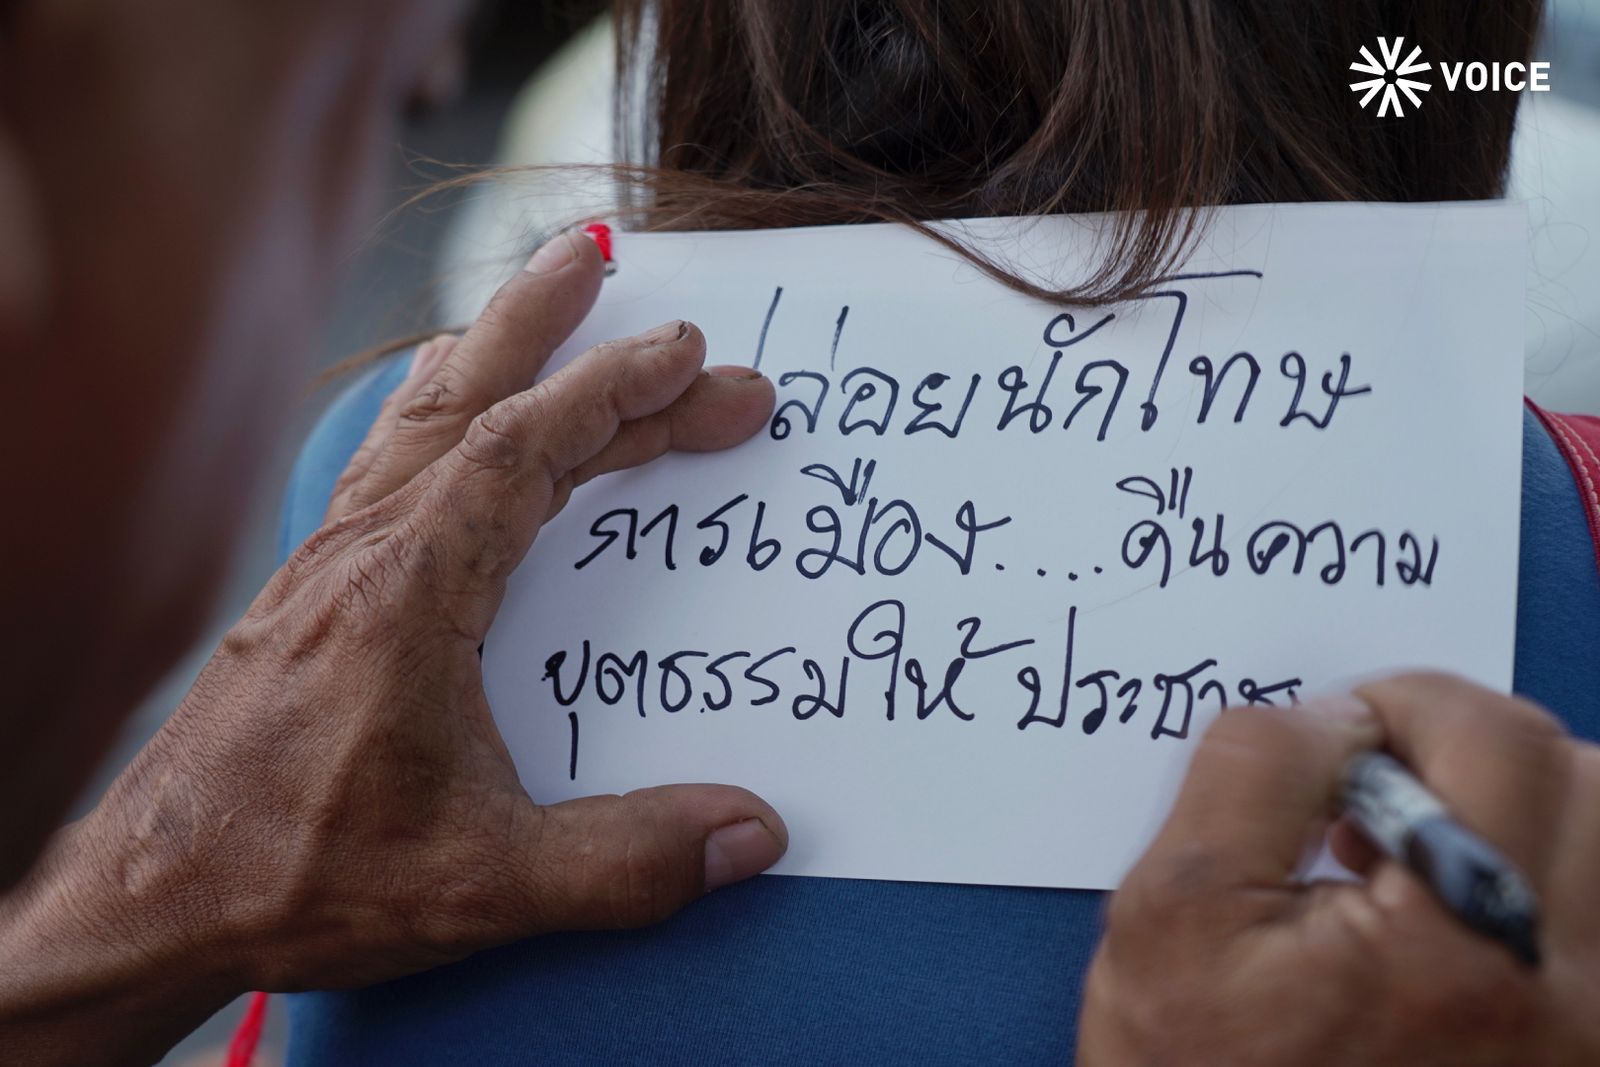 VOICE
ปล่อยนักโทษ
การเมือง....คืนความ
ยุตธรรมให้ ประชาช